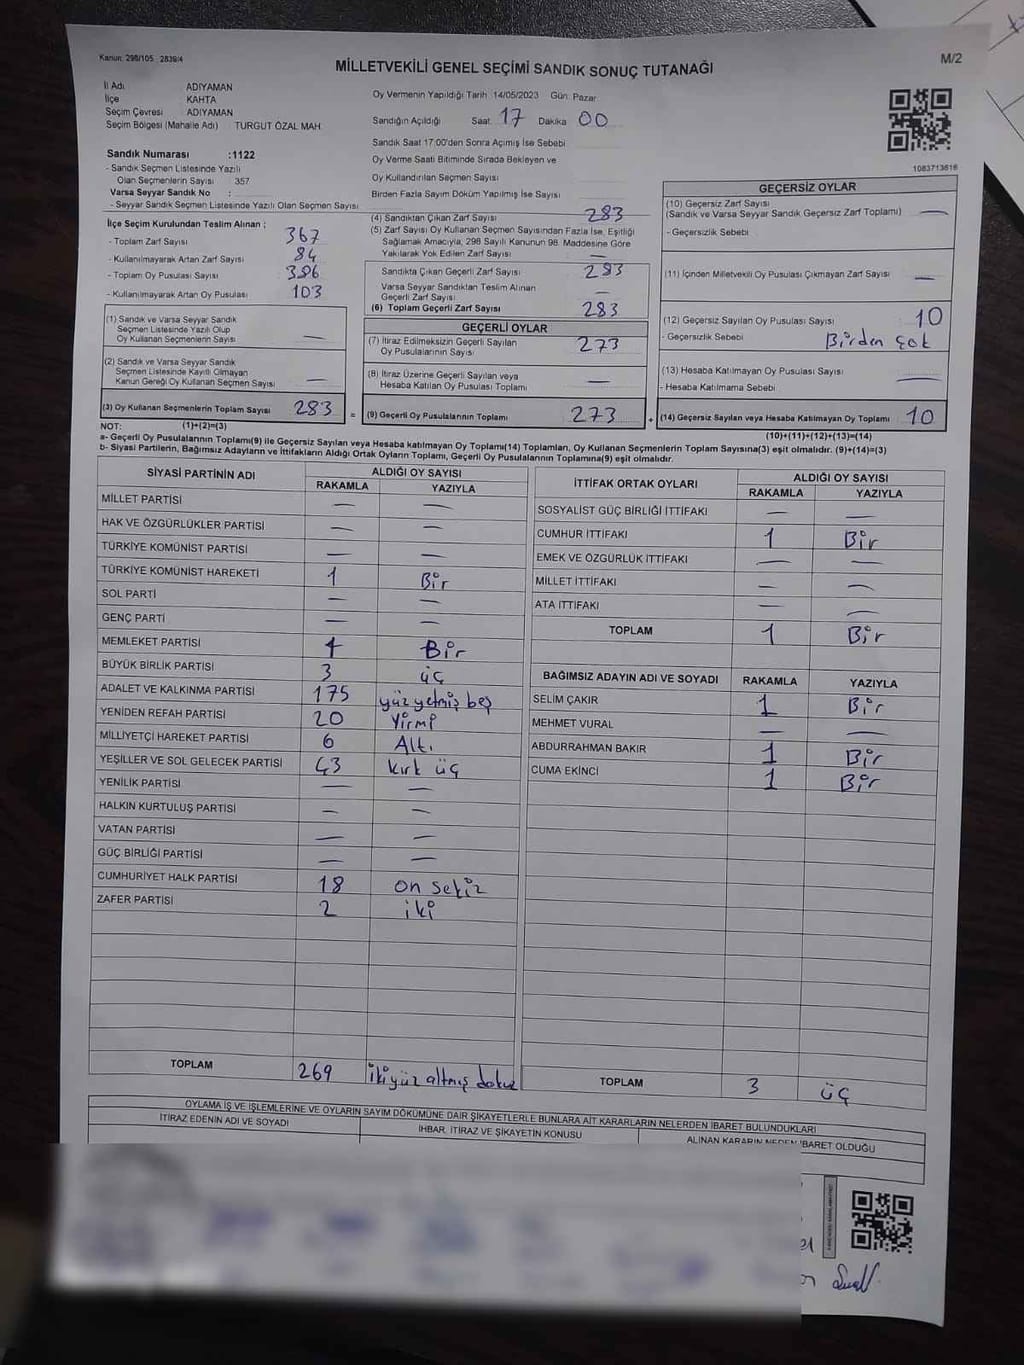 Kanun: 298/105 2839/4
M/2
MİLLETVEKİLİ GENEL SEÇİMİ SANDIK SONUÇ TUTANAĞI
İl Adı ADIYAMAN
İlçe KAHTA
Seçim Çevresi ADIYAMAN
Seçim Bölgesi (Mahalle Adı) TURGUT ÖZAL MAH.
Sandık Numarası :1122
- Sandık Seçmen Listesinde Yazılı
Olan Seçmenlerin Sayısı 357
Varsa Seyyar Sandık No :
- Seyyar Sandık Seçmen Listesinde Yazılı Olan Seçmen Sayısı
Oy Vermenin Yapıldığı Tarih 14/05/2023 Gün: Pazar
Sandığın Açıldığı Saat 17 Dakika 00
Sandık Saat 17:00'den Sonra Açımış İse Sebebi
Oy Verme Saati Bitiminde Sırada Bekleyen ve
Oy Kullandırılan Seçmen Sayısı
Birden Fazla Sayım Döküm Yapılmış İse Sayısı
1083713616
İlçe Seçim Kurulundan Teslim Alınan ;
- Toplam Zarf Sayısı 367
- Kullanılmayarak Artan Zarf Sayısı 84
- Toplam Oy Pusulası Sayısı 386
- Kullanılmayarak Artan Oy Pusulası 103
(1) Sandık ve Varsa Seyyar Sandık
Seçmen Listesinde Yazılı Olup
Oy Kullanan Seçmenlerin Sayısı —
(2) Sandık ve Varsa Seyyar Sandık
Seçmen Listesinde Kayıtlı Olmayan
Kanun Gereği Oy Kullanan Seçmen Sayısı —
(3) Oy Kullanan Seçmenlerin Toplam Sayısı 283 =
(4) Sandıktan Çıkan Zarf Sayısı 283
(5) Zarf Sayısı Oy Kullanan Seçmen Sayısından Fazla İse, Eşitliği
Sağlamak Amacıyla, 298 Sayılı Kanunun 98. Maddesine Göre
Yakılarak Yok Edilen Zarf Sayısı —
Sandıkta Çıkan Geçerli Zarf Sayısı 283
Varsa Seyyar Sandıktan Teslim Alınan
Geçerli Zarf Sayısı —
(6) Toplam Geçerli Zarf Sayısı 283
GEÇERLİ OYLAR
(7) İtiraz Edilmeksizin Geçerli Sayılan
Oy Pusulalarının Sayısı 273
(8) İtiraz Üzerine Geçerli Sayılan veya
Hesaba Katılan Oy Pusulası Toplamı —
(9) Geçerli Oy Pusulalarının Toplamı 273 +
GEÇERSİZ OYLAR
(10) Geçersiz Zarf Sayısı
(Sandık ve Varsa Seyyar Sandık Geçersiz Zarf Toplamı) —
- Geçersizlik Sebebi
(11) İçinden Milletvekili Oy Pusulası Çıkmayan Zarf Sayısı —
(12) Geçersiz Sayılan Oy Pusulası Sayısı 10
- Geçersizlik Sebebi Birden çok
(13) Hesaba Katılmayan Oy Pusulası Sayısı —
- Hesaba Katılmama Sebebi
(14) Geçersiz Sayılan veya Hesaba Katılmayan Oy Toplamı 10
NOT: (1)+(2)=(3) (10)+(11)+(12)+(13)=(14)
a- Geçerli Oy Pusulalarının Toplamı(9) ile Geçersiz Sayılan veya Hesaba katılmayan Oy Toplamı(14) Toplamları, Oy Kullanan Seçmenlerin Toplam Sayısına(3) eşit olmalıdır. (9)+(14)=(3)
b- Siyasi Partilerin, Bağımsız Adayların ve İttifakların Aldığı Ortak Oyların Toplamı, Geçerli Oy Pusulalarının Toplamına(9) eşit olmalıdır.
SİYASİ PARTİNİN ADI ALDIĞI OY SAYISI
RAKAMLA YAZIYLA
MİLLET PARTİSİ — —
HAK VE ÖZGÜRLÜKLER PARTİSİ — —
TÜRKİYE KOMÜNİST PARTİSİ — —
TÜRKİYE KOMÜNİST HAREKETİ 1 Bir
SOL PARTİ — —
GENÇ PARTİ — —
MEMLEKET PARTİSİ 1 Bir
BÜYÜK BİRLİK PARTİSİ 3 üç
ADALET VE KALKINMA PARTİSİ 175 yüz yetmiş beş
YENİDEN REFAH PARTİSİ 20 Yirmi
MİLLİYETÇİ HAREKET PARTİSİ 6 Altı
YEŞİLLER VE SOL GELECEK PARTİSİ 43 kırk üç
YENİLİK PARTİSİ — —
HALKIN KURTULUŞ PARTİSİ — —
VATAN PARTİSİ — —
GÜÇ BİRLİĞİ PARTİSİ — —
CUMHURİYET HALK PARTİSİ 18 on sekiz
ZAFER PARTİSİ 2 iki
TOPLAM 269 ikiyüz altmış dokuz
İTTİFAK ORTAK OYLARI ALDIĞI OY SAYISI
RAKAMLA YAZIYLA
SOSYALİST GÜÇ BİRLİĞİ İTTİFAKI — —
CUMHUR İTTİFAKI 1 Bir
EMEK VE ÖZGÜRLÜK İTTİFAKI — —
MİLLET İTTİFAKI — —
ATA İTTİFAKI — —
TOPLAM 1 Bir
BAĞIMSIZ ADAYIN ADI VE SOYADI RAKAMLA YAZIYLA
SELİM ÇAKIR 1 Bir
MEHMET VURAL — —
ABDURRAHMAN BAKIR 1 Bir
CUMA EKİNCİ 1 Bir
TOPLAM 3 üç
OYLAMA İŞ VE İŞLEMLERİNE VE OYLARIN SAYIM DÖKÜMÜNE DAİR ŞİKAYETLERLE BUNLARA AİT KARARLARIN NELERDEN İBARET BULUNDUKLARI
İTİRAZ EDENİN ADI VE SOYADI İHBAR, İTİRAZ VE ŞİKAYETİN KONUSU ALINAN KARARIN NEDEN İBARET OLDUĞU